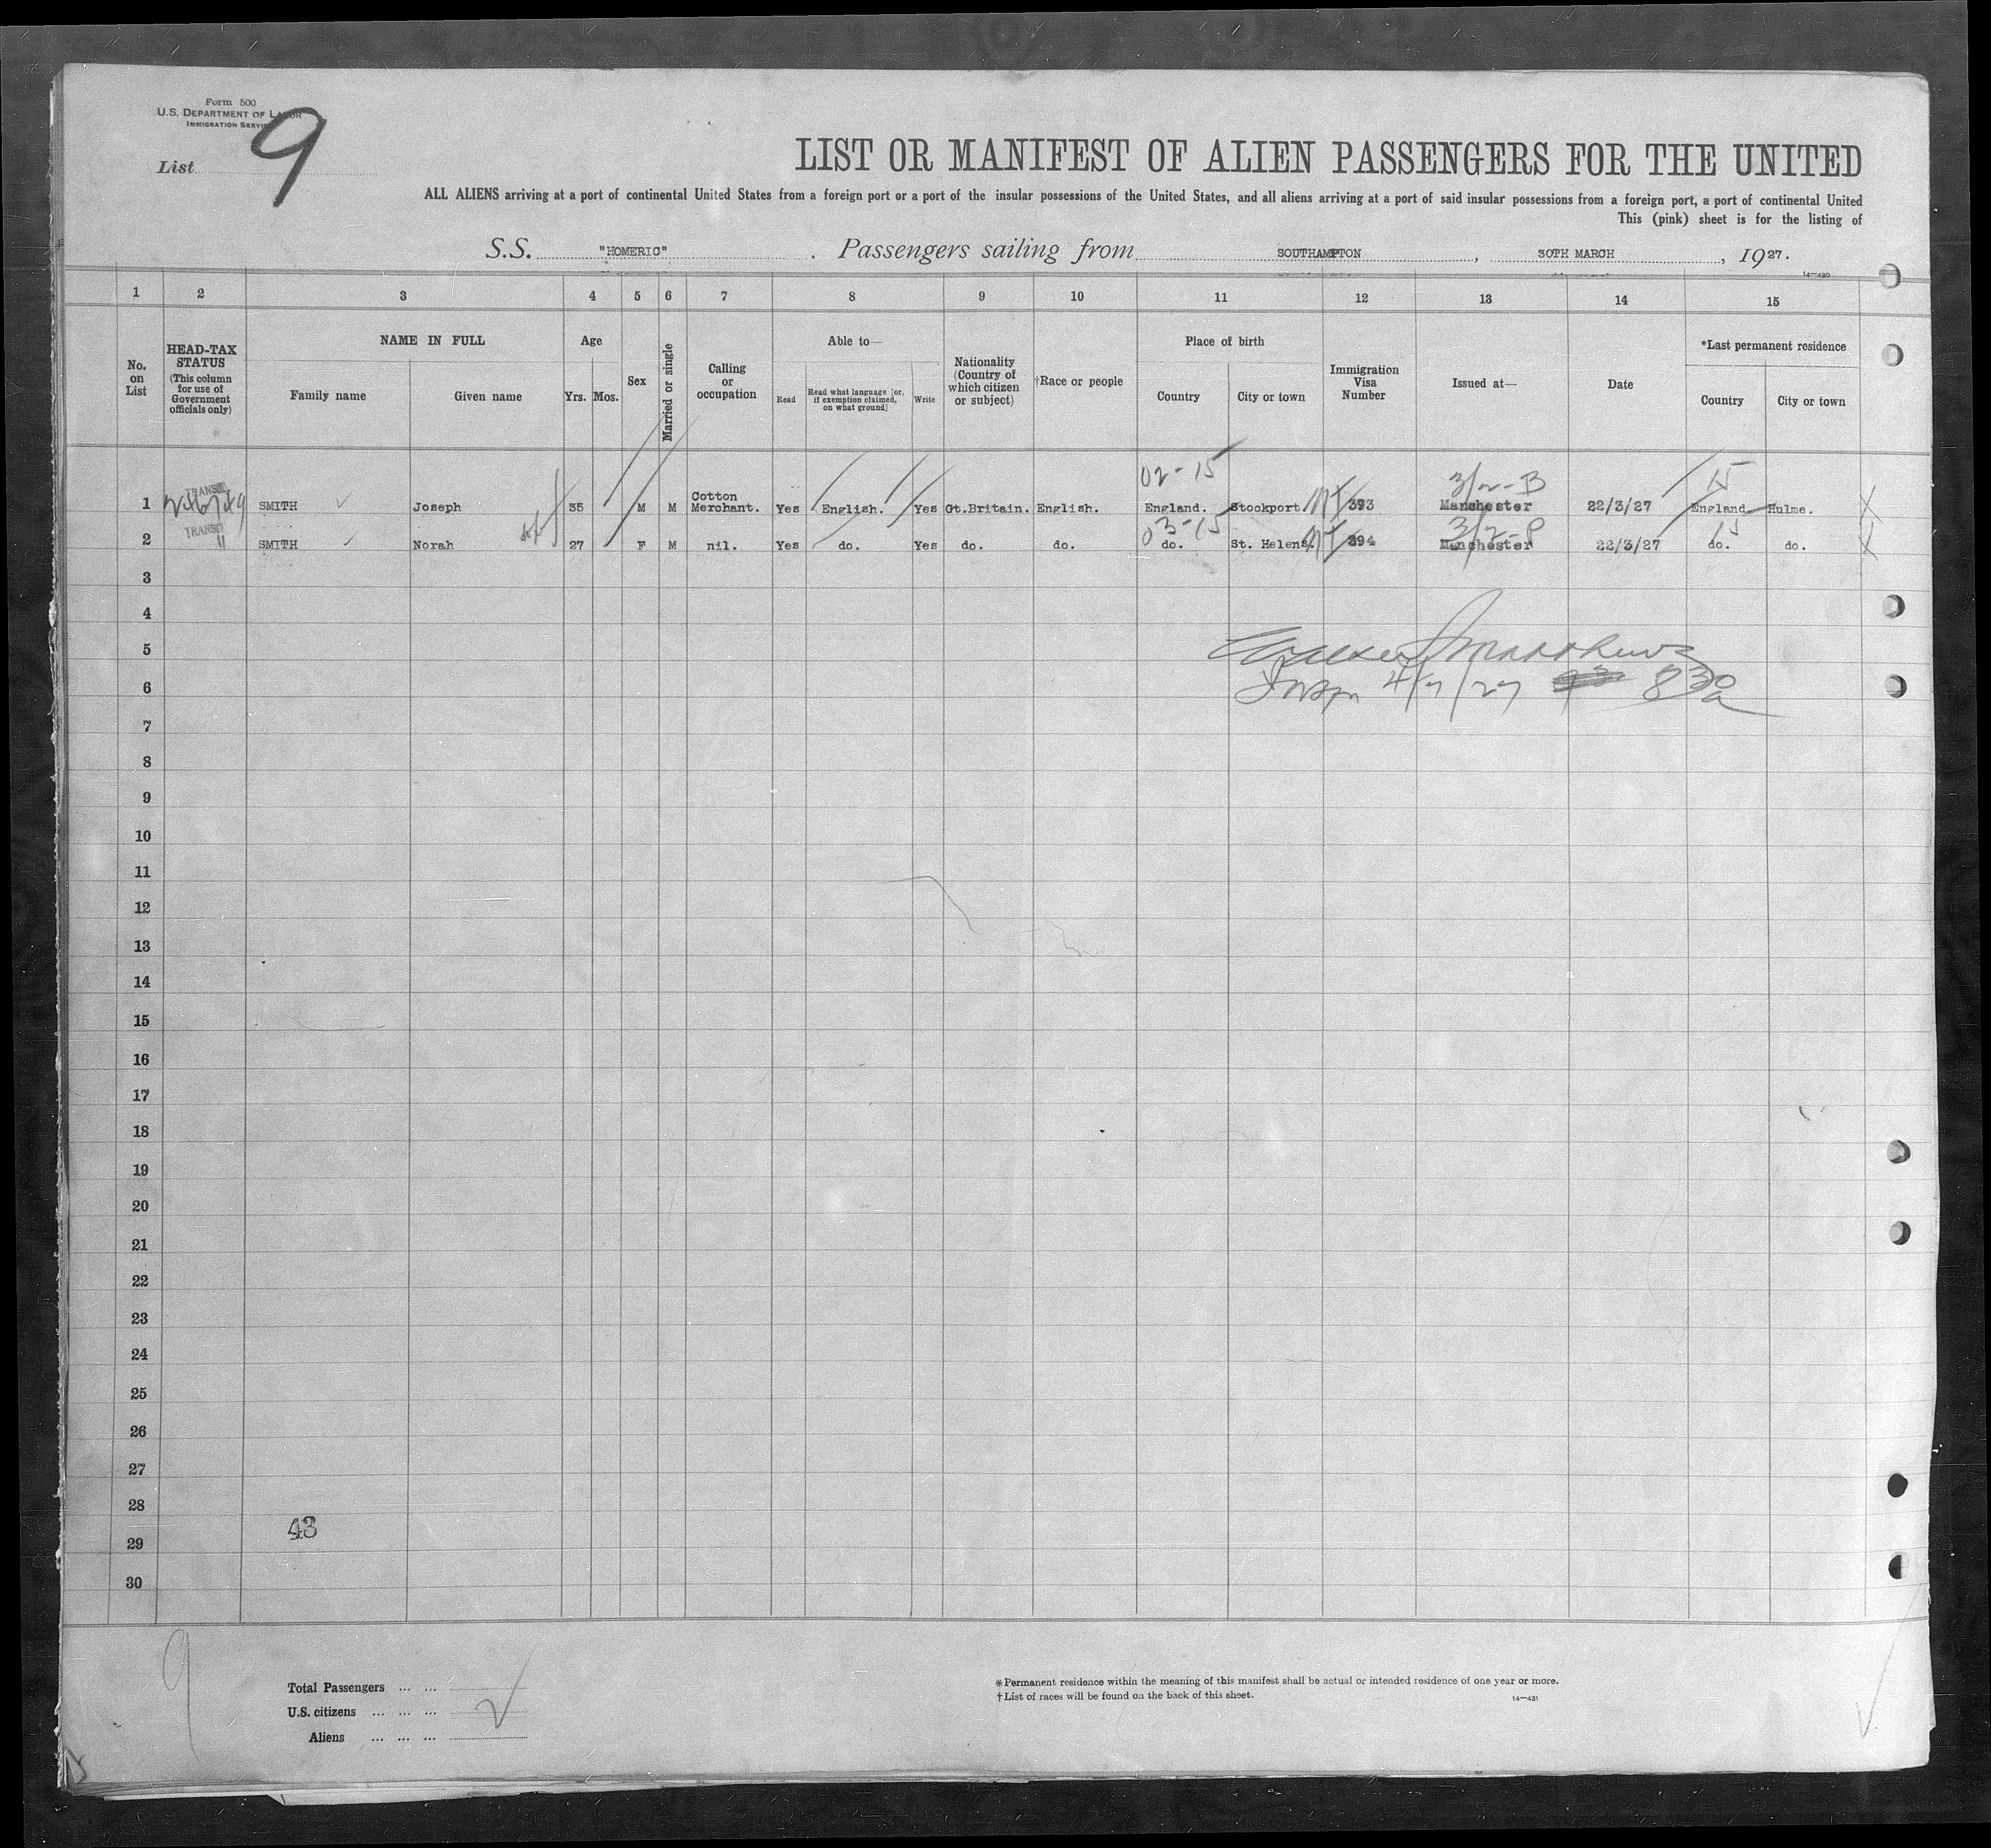 Form 500
U.S. DEPARTMENT OF LABOR
IMMIGRATION SERVICE
List 9
LIST OR MANIFEST OF ALIEN PASSENGERS FOR THE UNITED
ALL ALIENS arriving at a port of continental United States from a foreign port or a port of the insular possessions of the United States, and all aliens arriving at a port of said insular possessions from a foreign port, a port of continental United
This (pink) sheet is for the listing of
S.S. "HOMERIC" . Passengers sailing from SOUTHAMPTON , 30TH MARCH , 1927.
14—430
1 2 3 4 5 6 7 8 9 10 11 12 13 14 15
No. on List
HEAD-TAX STATUS (This column for use of Government officials only)
NAME IN FULL
Family name Given name
Age
Yrs. Mos.
Sex
Married or single
Calling or occupation
Able to—
Read
Read what language [or, if exemption claimed, on what ground]
Write
Nationality (Country of which citizen or subject)
†Race or people
Place of birth
Country City or town
Immigration Visa Number
Issued at—
Date
*Last permanent residence
Country City or town
02-15 3/2-B 15
1 SMITH Joseph 35 M M Cotton Merchant. Yes English. Yes Gt.Britain. English. England. Stockport 393 Manchester 22/3/27 England Hulme.
03-15 3/2-P 15
2 SMITH Norah 27 F M nil. Yes do. Yes do. do. do. St. Helens. 394 Manchester 22/3/27 do. do.
3
4
5
6 Insp 4/7/27 8 30 a
7
8
9
10
11
12
13
14
15
16
17
18
19
20
21
22
23
24
25
26
27
28
43
29
30
9
Total Passengers ... ...
U.S. citizens ... ... ... 2
Aliens ... ... ...
*Permanent residence within the meaning of this manifest shall be actual or intended residence of one year or more.
†List of races will be found on the back of this sheet.
14—431